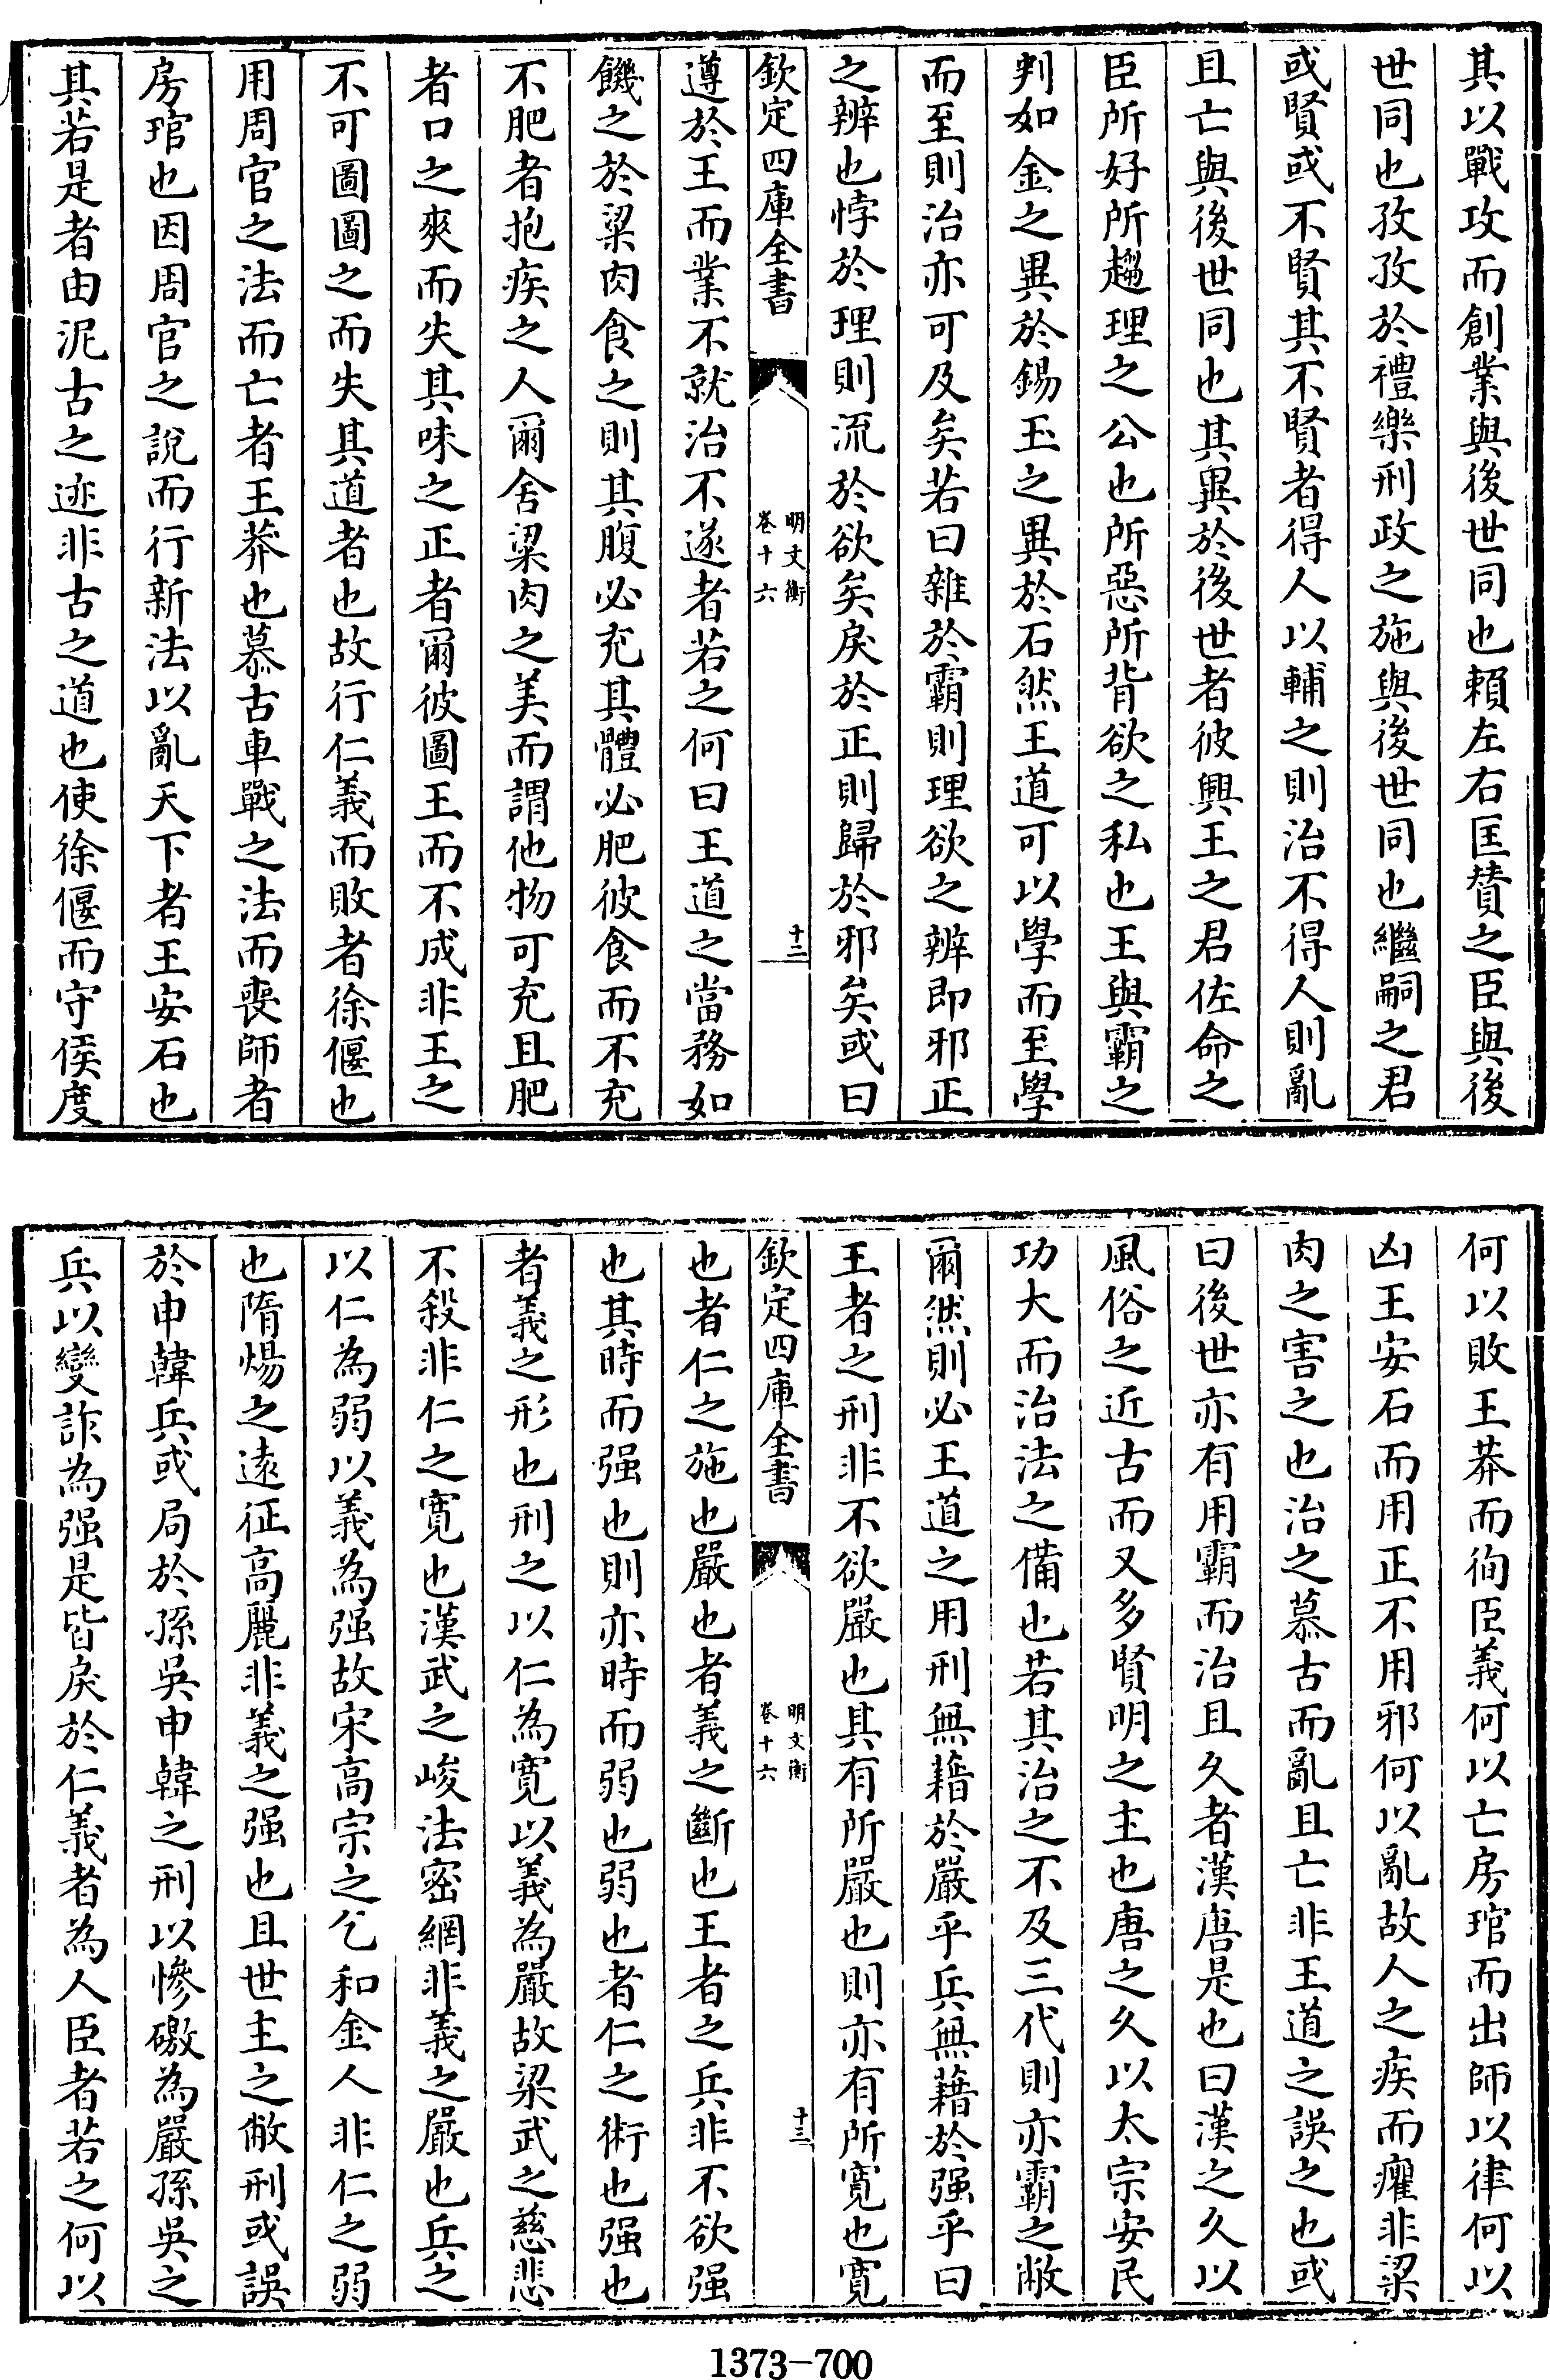 其以戰攻而創業與後世同也賴左右匡賛之臣與後
世同也孜孜於禮樂刑政之施與後世同也繼嗣之君
或賢或不賢其不賢者得人以輔之則治不得人則亂
且亡與後世同也其異於後世者彼興王之君佐命之
臣所好所趨理之公也所惡所背欲之私也王與霸之
判如金之異於錫玉之異於石然王道可以學而至學
而至則治亦可及矣若曰雜於霸則理欲之辨即邪正
之辨也悖於理則流於欲矣戾於正則歸於邪矣或曰
欽定四庫全書
明文衡
卷十六
十二
遵於王而業不就治不遂者若之何曰王道之當務如
饑之於粱肉食之則其腹必充其體必肥彼食而不充
不肥者抱疾之人爾舍粱肉之美而謂他物可充且肥
者口之爽而失其味之正者爾彼圖王而不成非王之
不可圖圖之而失其道者也故行仁義而敗者徐偃也
用周官之法而亡者王莽也慕古車戰之法而喪師者
房琯也因周官之說而行新法以亂天下者王安石也
其若是者由泥古之迹非古之道也使徐偃而守侯度
何以敗王莽而徇臣義何以亡房琯而出師以律何以
凶王安石而用正不用邪何以亂故人之疾而癯非粱
肉之害之也治之慕古而亂且亡非王道之誤之也或
曰後世亦有用霸而治且久者漢唐是也曰漢之久以
風俗之近古而又多賢明之主也唐之久以太宗安民
功大而治法之備也若其治之不及三代則亦霸之敝
爾然則必王道之用刑無藉於嚴乎兵無藉於强乎曰
王者之刑非不欲嚴也其有所嚴也則亦有所寛也寛
欽定四庫全書
明文衡
卷十六
十三
也者仁之施也嚴也者義之斷也王者之兵非不欲强
也其時而强也則亦時而弱也弱也者仁之術也强也
者義之形也刑之以仁為寛以義為嚴故梁武之慈悲
不殺非仁之寛也漢武之峻法密網非義之嚴也兵之
以仁為弱以義為强故宋高宗之乞和金人非仁之弱
也隋煬之遠征高麗非義之强也且世主之敝刑或誤
於申韓兵或局於孫吳申韓之刑以慘礉為嚴孫吳之
兵以變詐為强是皆戾於仁義者為人臣者若之何以
1373-700